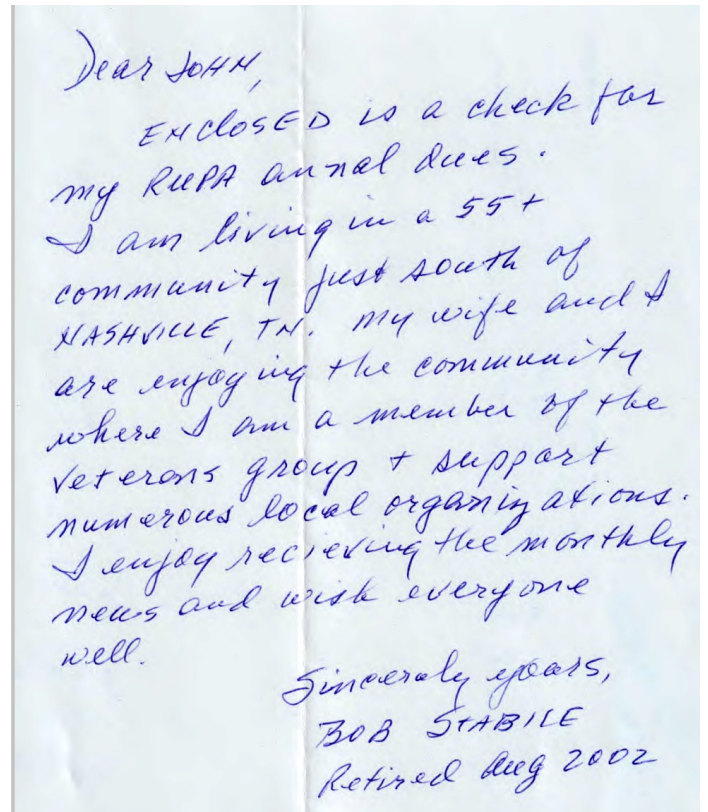 Dear JOHN,
ENCLOSED is a check for
my RUPA annal dues.
I am living in a 55+
community just south of
NASHVILLE, TN. My wife and I
are enjoying the community
where I am a member of the
Veterans group + support
numerous local organizations.
I enjoy recieving the monthly
news and wish everyone
well.
Sincerely yours,
BOB STABILE
Retired Aug 2002